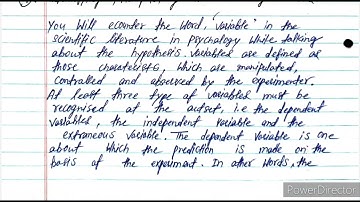 You Will ecounter the Word, "Variable" in the
scientific literature in psychology While talking
about the hypothesis. Variables are defined as
those charateristis, Which are manipulated,
Controlled and observed by the experimenter.
At least three type of variables must be
recognised at the outset, i.e the dependent
variables, the independent Variable and the
extraneous variable. The dependent Variable is one
about Which the prediction is made on the
basis of the experiment. In other Words, the
PowerDirector